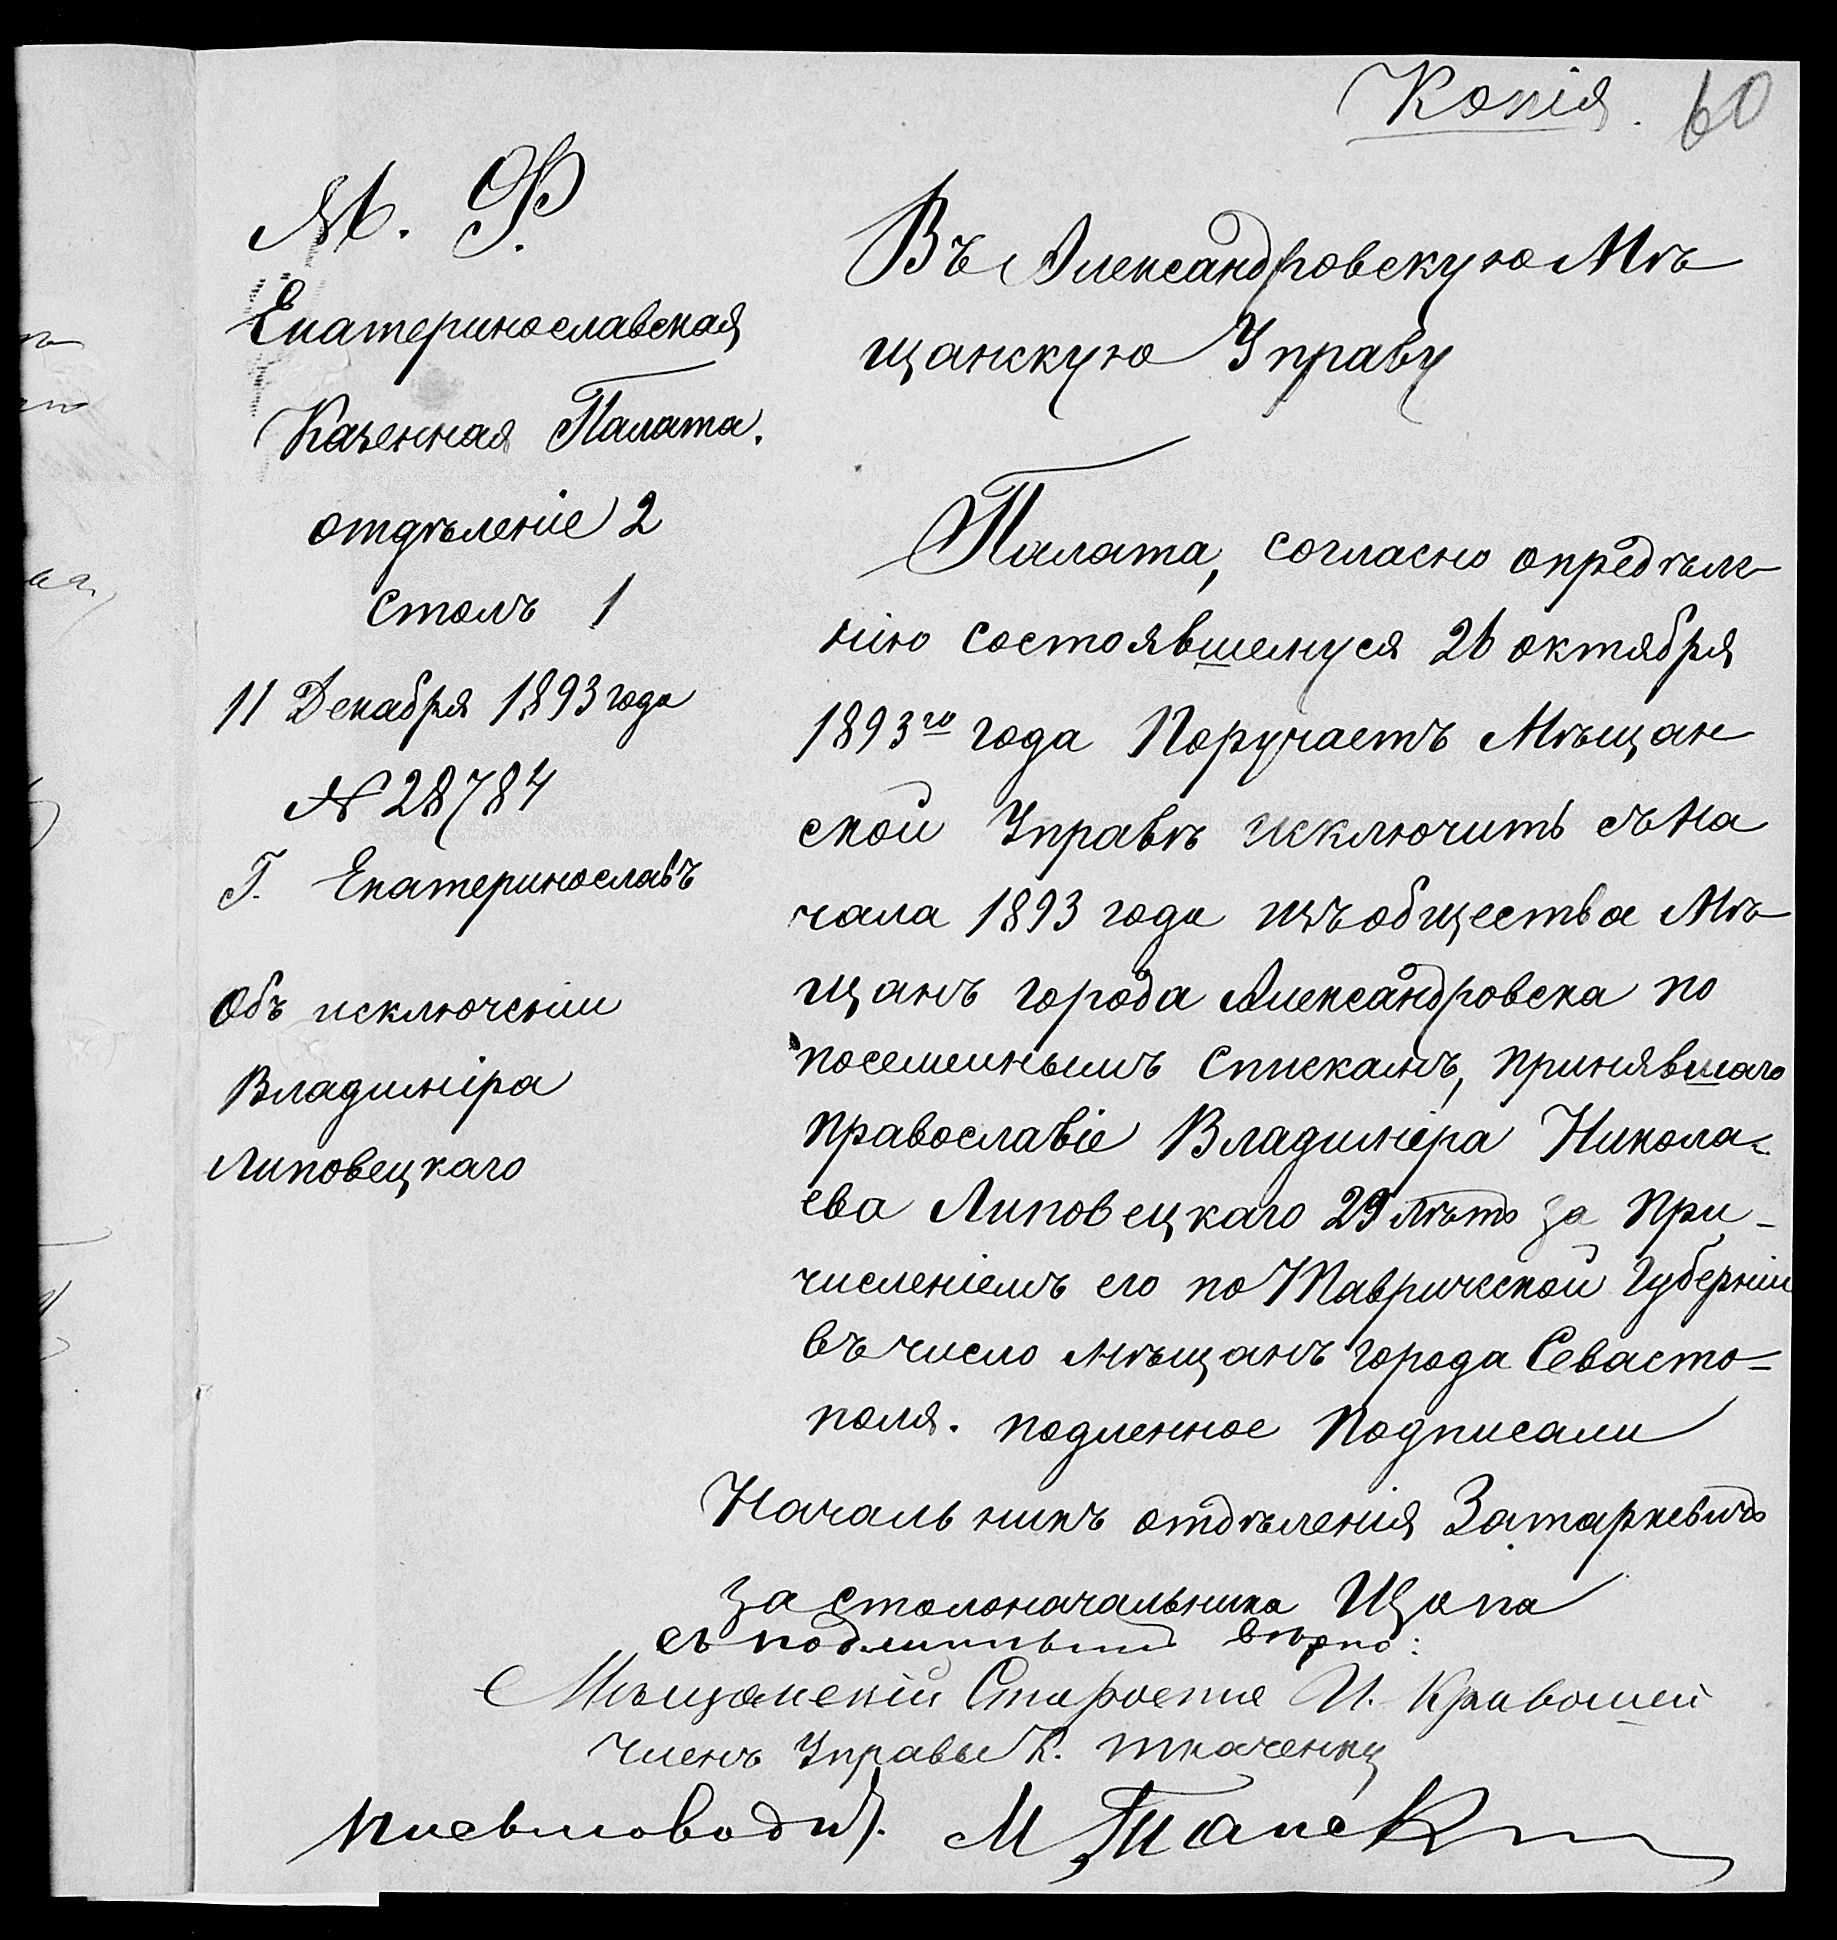 Копія. 60
М. Ф.
Екатеринославская
Казенная Палата.
отдѣленіе 2
столъ 1
11 Декабря 1893 года
№ 28784
Г. Екатеринославъ
Объ исключеніи
Владиміра
Липовецкаго
Въ Александровскую Мѣ
щанскую Управу
Палата, согласно опредѣле-
нію состоявшемуся 26 октября
1893го года Поручаетъ Мѣщан
ской Управѣ исключить съ на
чала 1893 года изъ общества Мѣ-
щанъ города Александровска по
посемейнымъ спискамъ, принявшаго
православіе Владиміра Никола-
ева Липовецкаго 29 лѣтъ за при-
численіемъ его по Таврической Губерніи
въ число мѣщанъ города Севасто-
поля. подленное Подписали
Начальникъ отдѣленія Затаркевичъ
За столоначальника Щопа
съ подлиннымъ вѣрно:
Мѣщанскій Староста И. Кривошей
Членъ Управы К. Ткаченко
письмоводит. М